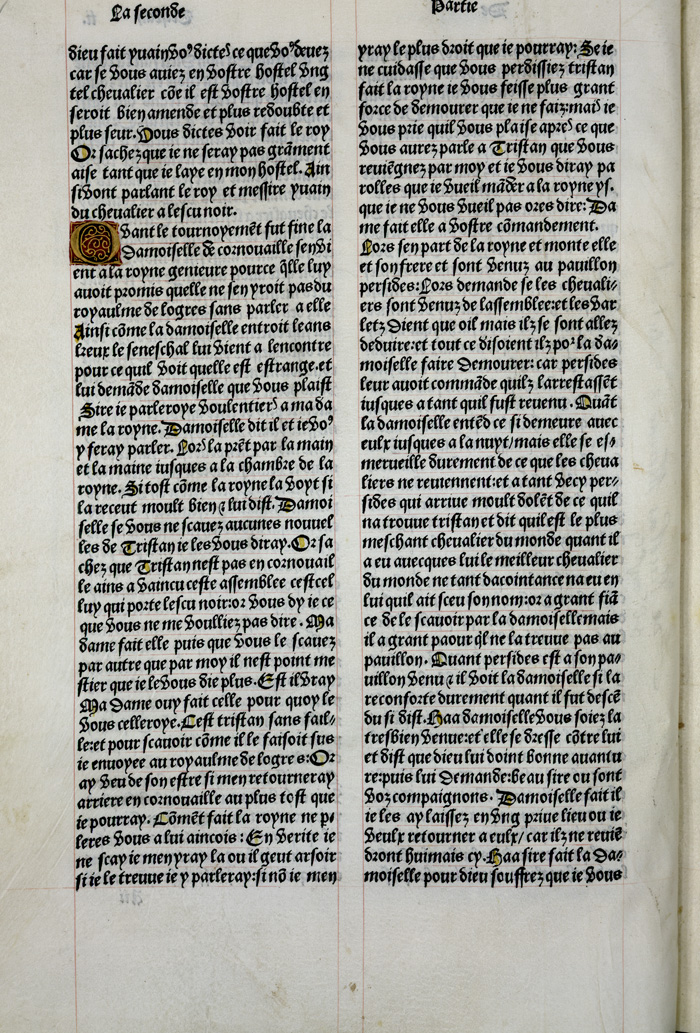 La seconde
Partie
dieu fait yuain vo⁹ dictes ce que vo⁹ deuez
car se vous auiez en vostre hostel vng
tel cheualier cõe il est vostre hostel en
seroit bien amende et plus redoubte et
plus seur. Vous dictes voir fait le roy
Or sachez que ie ne seray pas grãment
aise tant que ie laye en mon hostel. Ain
si vont parlant le roy et messire yuain
du cheualier a lescu noir.
Quant le tournoyemẽt fut fine la
Damoiselle de cornouaille sen vi
ent a la royne genieure pource q̃lle luy
auoit promis quelle ne sen yroit pas du
royaulme de logres sans parler a elle
Ainsi cõme la damoiselle entroit leans
kreux le seneschal lui vient a lencontre
pour ce quil voit quelle est estrange.et
lui demãde damoiselle que vous plaist
Sire ie parleroye voulentiers a ma da
me la royne. Damoiselle dit il et ie vo⁹
y feray parler. Lors la prẽt par la main
et la maine iusques a la chambre de la
royne. Si tost cõme la royne la voyt si
la receut moult bien ⁊ lui dist. Damoi
selle se vous ne scauez aucunes nouuel
les de Tristan ie les vous diray. Or sa
chez que Tristan nest pas en cornouail
le ains a vaincu ceste assemblee cest cel
luy qui porte lescu noir:or vous dy ie ce
que vous ne me voulliez pas dire. Ma
dame fait elle puis que vous le scauez
par autre que par moy il nest point me
stier que ie le vous die plus. Est il vray
Ma Dame ouy fait celle pour quoy le
vous celleroye. Cest tristan sans fail⸗
le:et pour scauoir cõme il le faisoit sus
ie enuoyee au royaulme de logres: Or
ay veu de son estre si men retourneray
arriere en cornouaille au plus tost que
ie pourray. Cõmẽt fait la royne ne p⸗
leres vous a lui aincois: En verite ie
ne scay ie men yray la ou il geut arsoir
si ie le treuue ie y parleray:si nõ ie men
yray le plus droit que ie pourray: Se ie
ne cuidasse que vous perdissiez tristan
fait la royne ie vous feisse plus grant
force de demourer que ie ne faiz:mais ie
vous prie quil vous plaise apres ce que
vous aurez parle a Tristan que vous
reuiẽgnez par moy et ie vous diray pa
rolles que ie vueil mãder a la royne ys.
que ie ne vous vueil pas ores dire: Da
me fait elle a vostre cõmandement.
Lors sen part de la royne et monte elle
et son frere et sont venuz au pauillon
persides: Lors demande se les cheuali⸗
ers sont venuz de lassemblee:et les var
letz Dient que oil mais ilz se sont allez
deduire:et tout ce disoient ilz poᷣ la da⸗
moiselle faire Demourer: car persides
leur auoit commãde quilz larrestassẽt
iusques a tant quil fust reuenu. Quãt
la damoiselle entẽd ce si demeure auec
eulx iusques a la nuyt/mais elle se es⸗
merueille durement de ce que les cheua
liers ne reuiennent:et a tant vecy per⸗
sides qui arriue moult dolẽt de ce quil
na trouue tristan et dit quil est le plus
meschant cheualier du monde quant il
a eu auecques lui le meilleur cheualier
du monde ne tant dacointance na eu en
lui quil ait sceu son nom:or a grant fiã
ce de le scauoir par la damoiselle:mais
il a grant paour q̃l ne la treuue pas au
pauillon. Quant persides est a son pa⸗
uillon venu ⁊ il voit la damoiselle si la
reconforte durement quant il fut descẽ
du si dist. Haa damoiselle vous soiez la
tresbien venue:et elle se dresse cõtre lui
et dist que dieu lui doint bonne auantu
re:puis lui Demande:beau sire ou sont
voz compaignons. Damoiselle fait il
ie les ay laissez en vng priue lieu ou ie
veulx retourner a eulx/ car ilz ne reuiẽ
dront huimais cy. Haa sire fait la Da⸗
moiselle pour dieu souffrez que ie vous